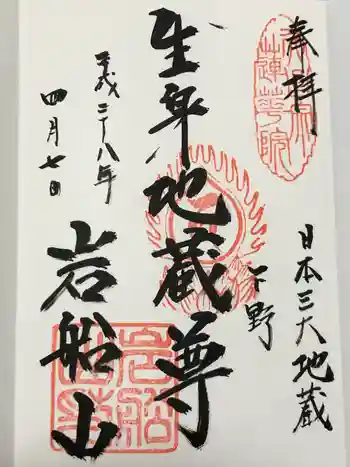 奉拝
日本三大地蔵
下野
生身地蔵尊
岩船山
平成二十八年
四月七日
蓮華院